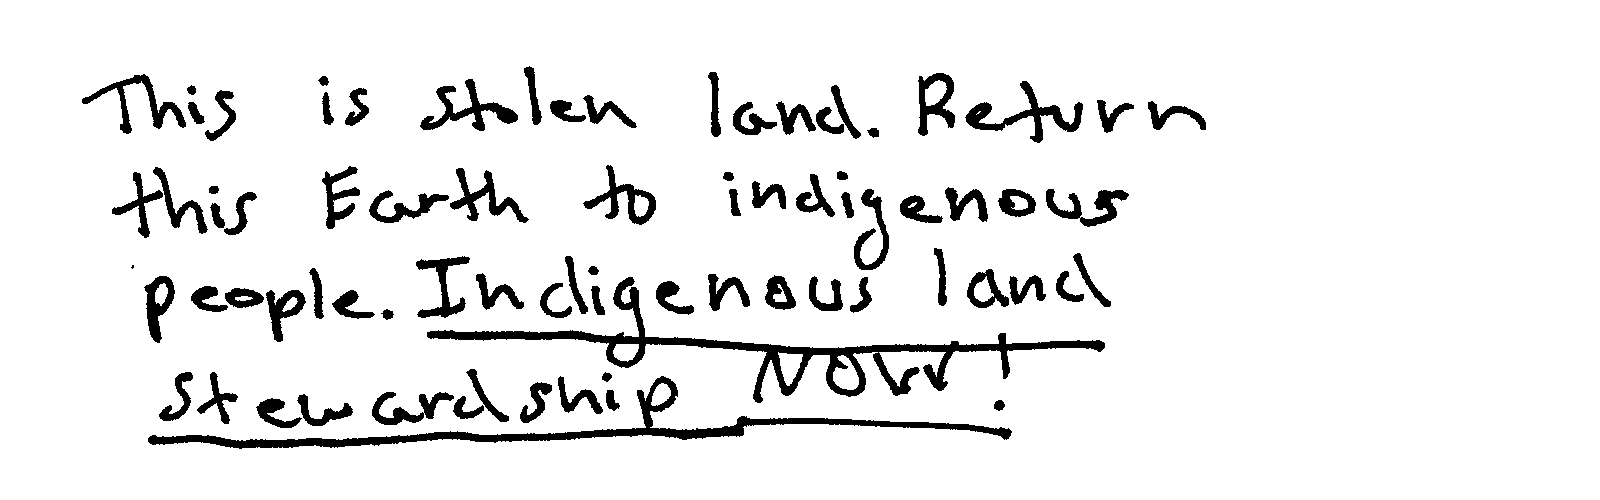 This is stolen land. Return
this Earth to indigenous
people. Indigenous land
stewardship NOW!